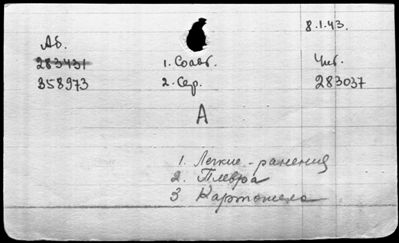 8.1.43.
Аб. 1. Соавт. Чит.
283431
358973 2. Сер. 283037
А
1. Легкие - ранения
2. Плевра
3 Картотека